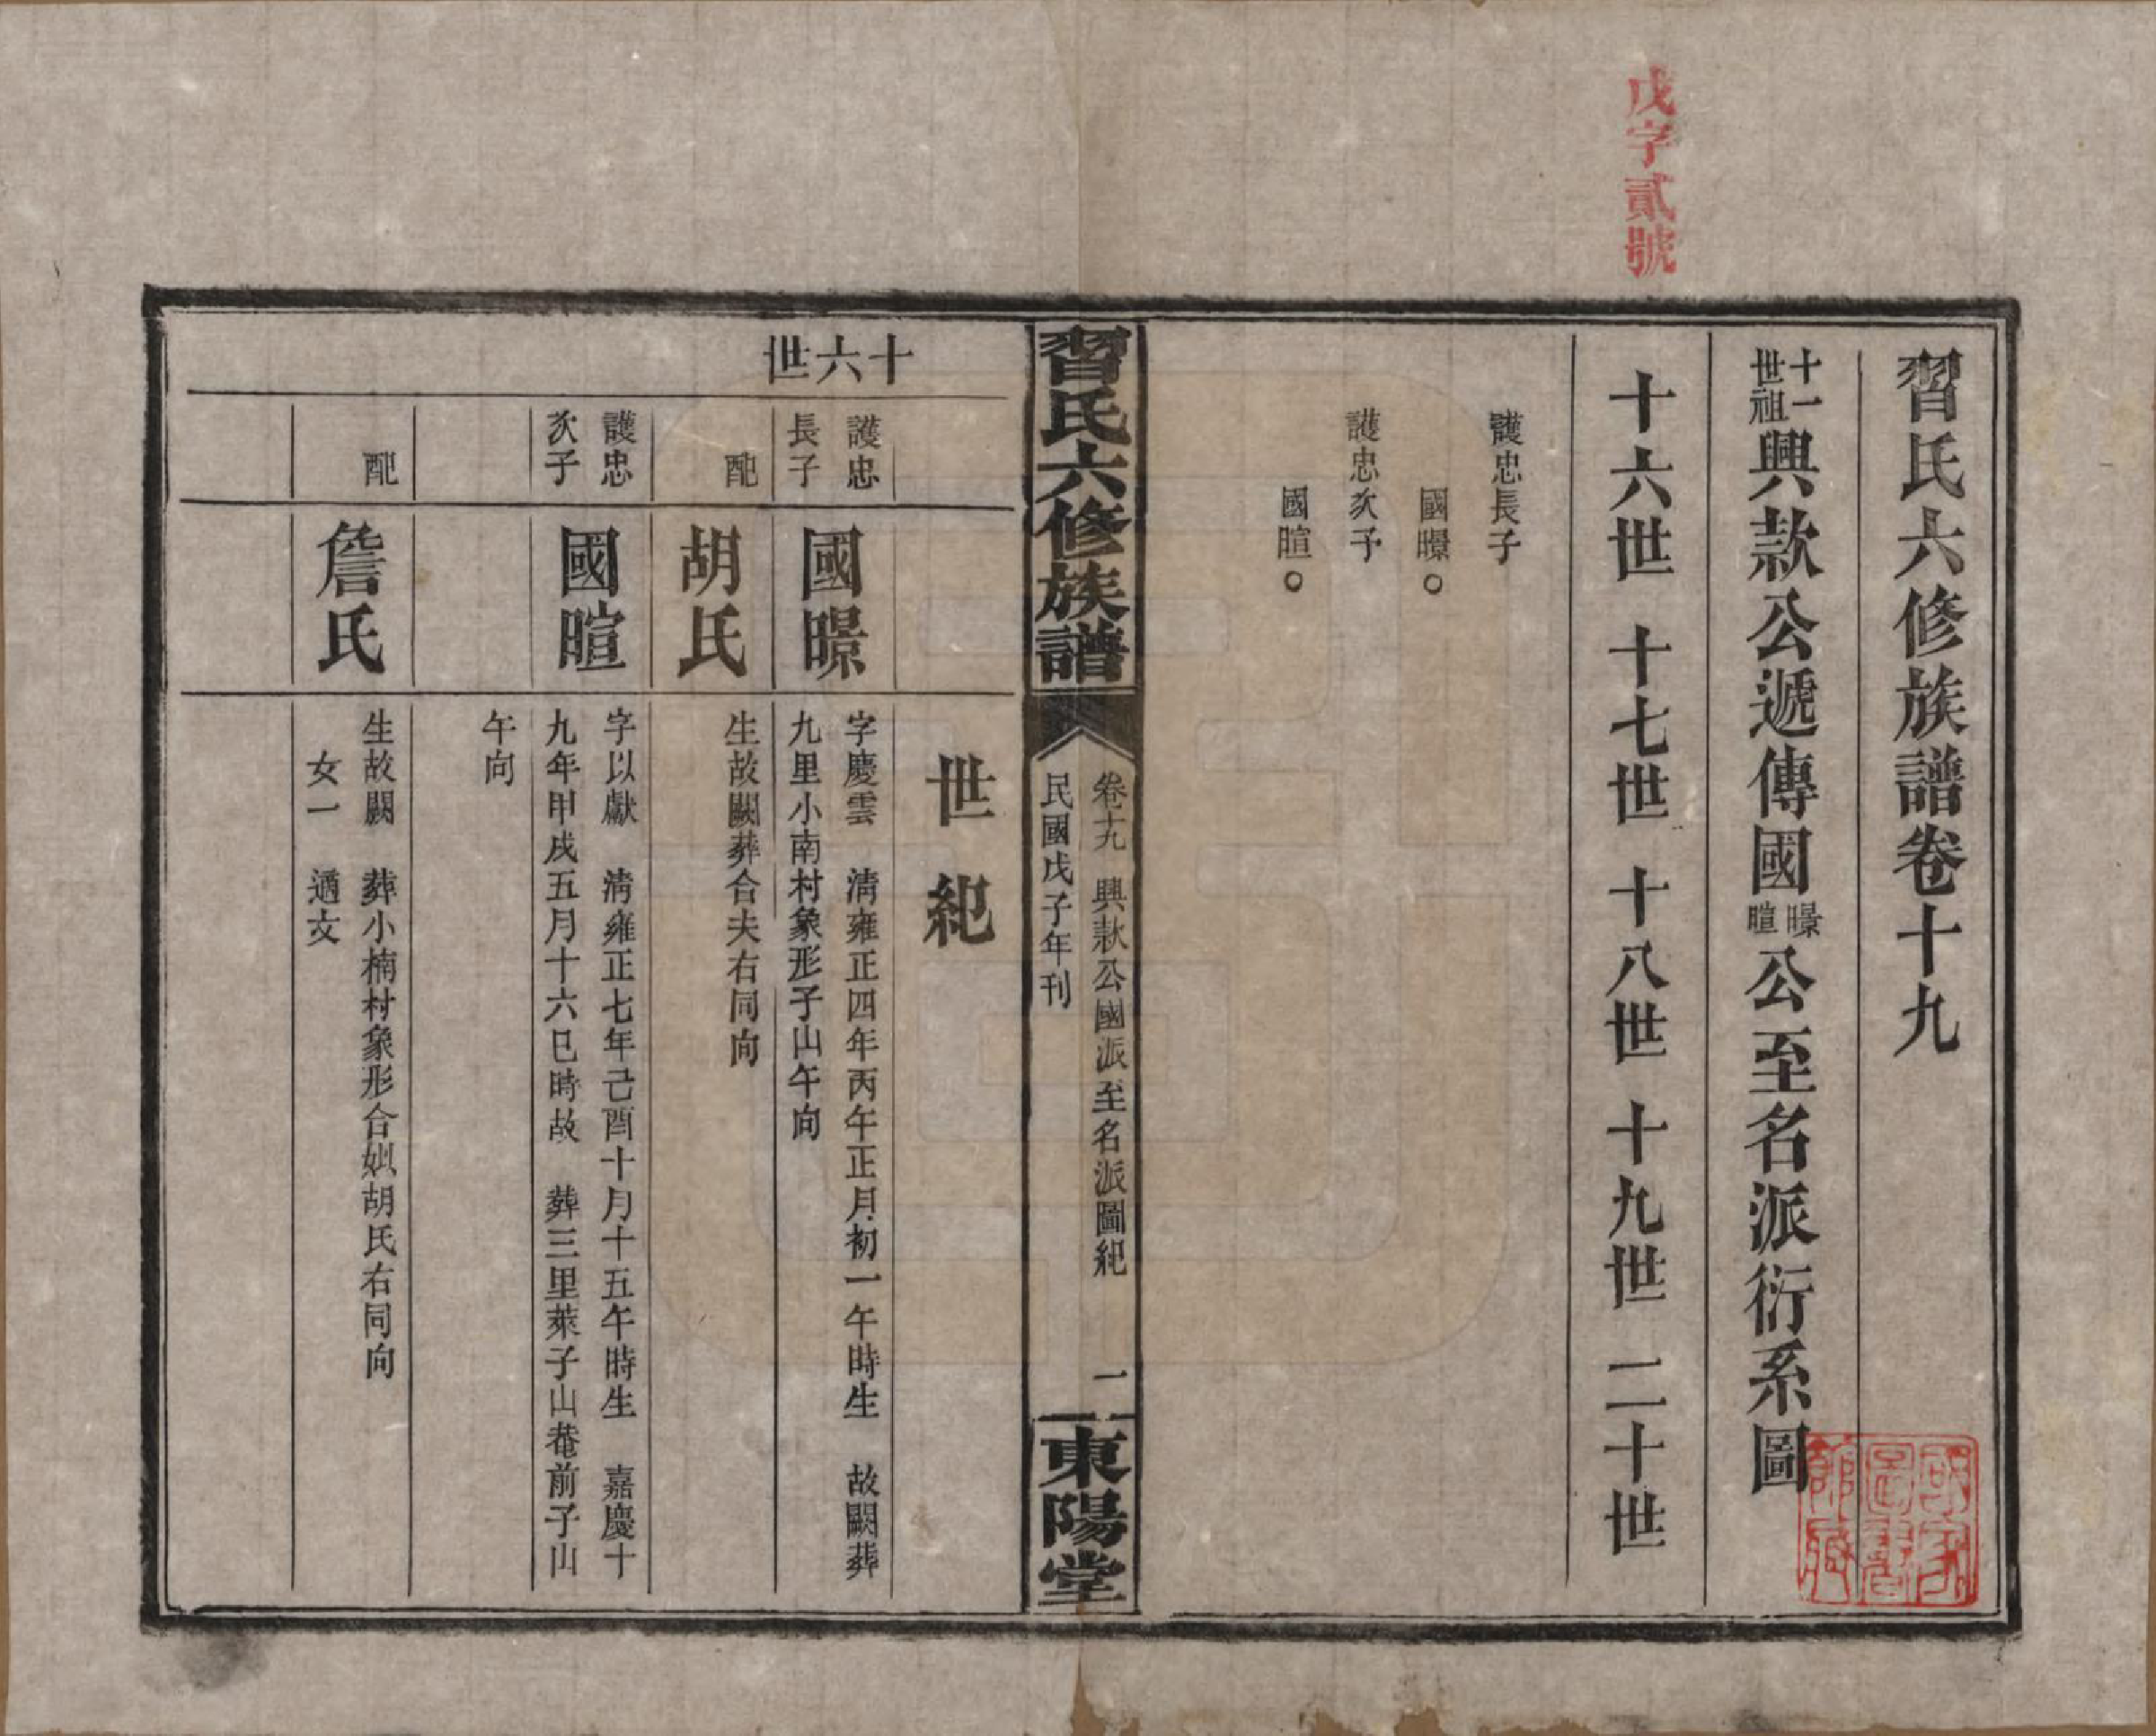 戊字貳號
習氏六修族譜卷十九
十一世祖興款公遞傳國暻暄公至名派衍系圖
十六世 十七世 十八世 十九世 二十世
護忠長子
國暻○
護忠次子
國暄○
習氏六修族譜
卷十九 興款公國派至名派圖紀 一
民國戊子年刊
東陽堂
十六世
世紀
護忠
長子
國暻
字慶雲 清雍正四年丙午正月初一午時生 故闕葬
九里小南村象形子山午向
配
胡氏
生故闕葬合夫右同向
護忠
次子
國暄
字以獻 清雍正七年己酉十月十五午時生 嘉慶十
九年甲戌五月十六巳時故 葬三里萊子山菴前子山
午向
配
詹氏
生故闕 葬小楠村象形合姒胡氏右同向
女一 適文
國家圖書館藏